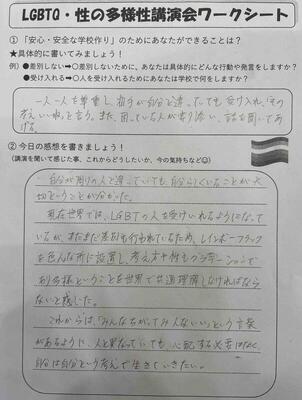 LGBTQ・性の多様性講演会ワークシート
①「安心・安全な学校作り」のためにあなたができることは?
★具体的に書いてみましょう!
例)●差別しない➡○差別しないために、あなたは具体的にどんな行動や発言をしますか?
●受け入れる➡○人を受け入れるためにあなたは学校で何をしますか?
一人一人を尊重し、相手が自分と違っていても受け入れ、「その
考えいいね」と言う。また、困っている人が寄り添い、話を聞いてあ
げる。
②今日の感想を書きましょう!
(講演を聞いて感じた事、これからどうしたいか、今の気持ちなど☺)
自分が周りの人と違っていても、自分らしくいることが大
切ということが分かった。
現在世界では、LGBTの人を受けいれるようになって
いるが、まだまだ差別も行われているため、レインボーフラッグ
を色んな所に設置し、考え方や性もグラデーションで
あり多様ということを世界で共通理解しなければなら
ないと感じた。
これからは、「みんなちがってみんないい」という言葉
があるように、人と異なっていても心配する必要はなく、
自分は自分という考えで生きていきたい。